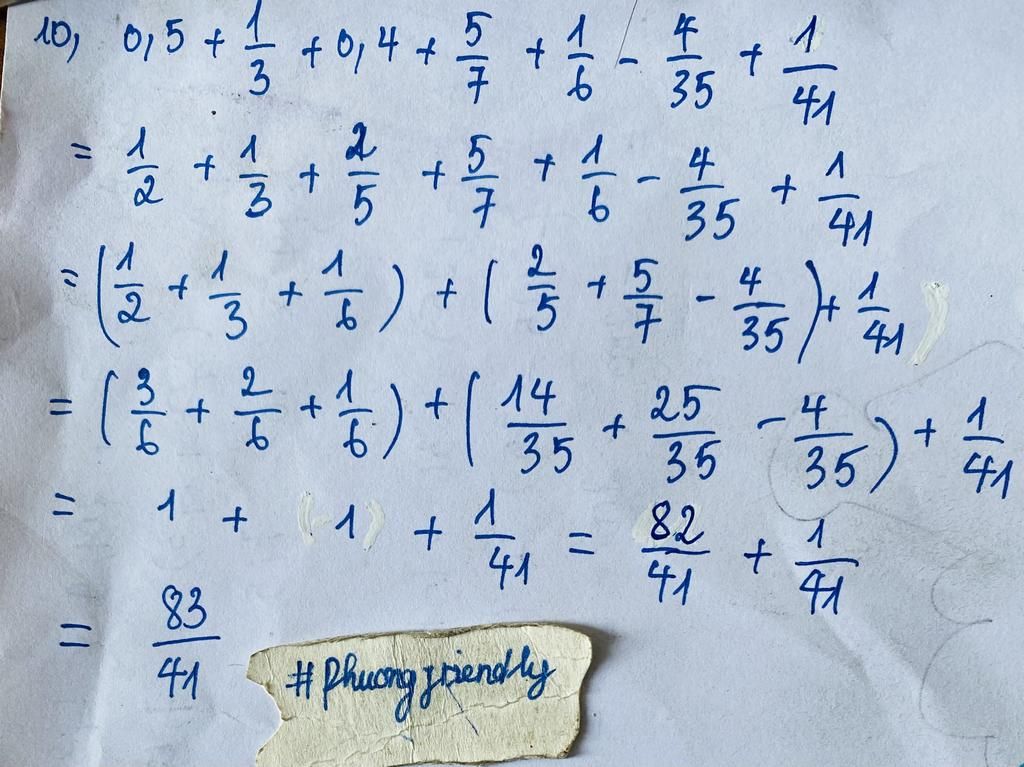 10, 0,5 + 1/3 + 0,4 + 5/7 + 1/6 - 4/35 + 1/41
= 1/2 + 1/3 + 2/5 + 5/7 + 1/6 - 4/35 + 1/41
= (1/2 + 1/3 + 1/6) + (2/5 + 5/7 - 4/35) + 1/41
= (3/6 + 2/6 + 1/6) + (14/35 + 25/35 - 4/35) + 1/41
= 1 + 1 + 1/41 = 82/41 + 1/41
= 83/41
#Phuongfriendly